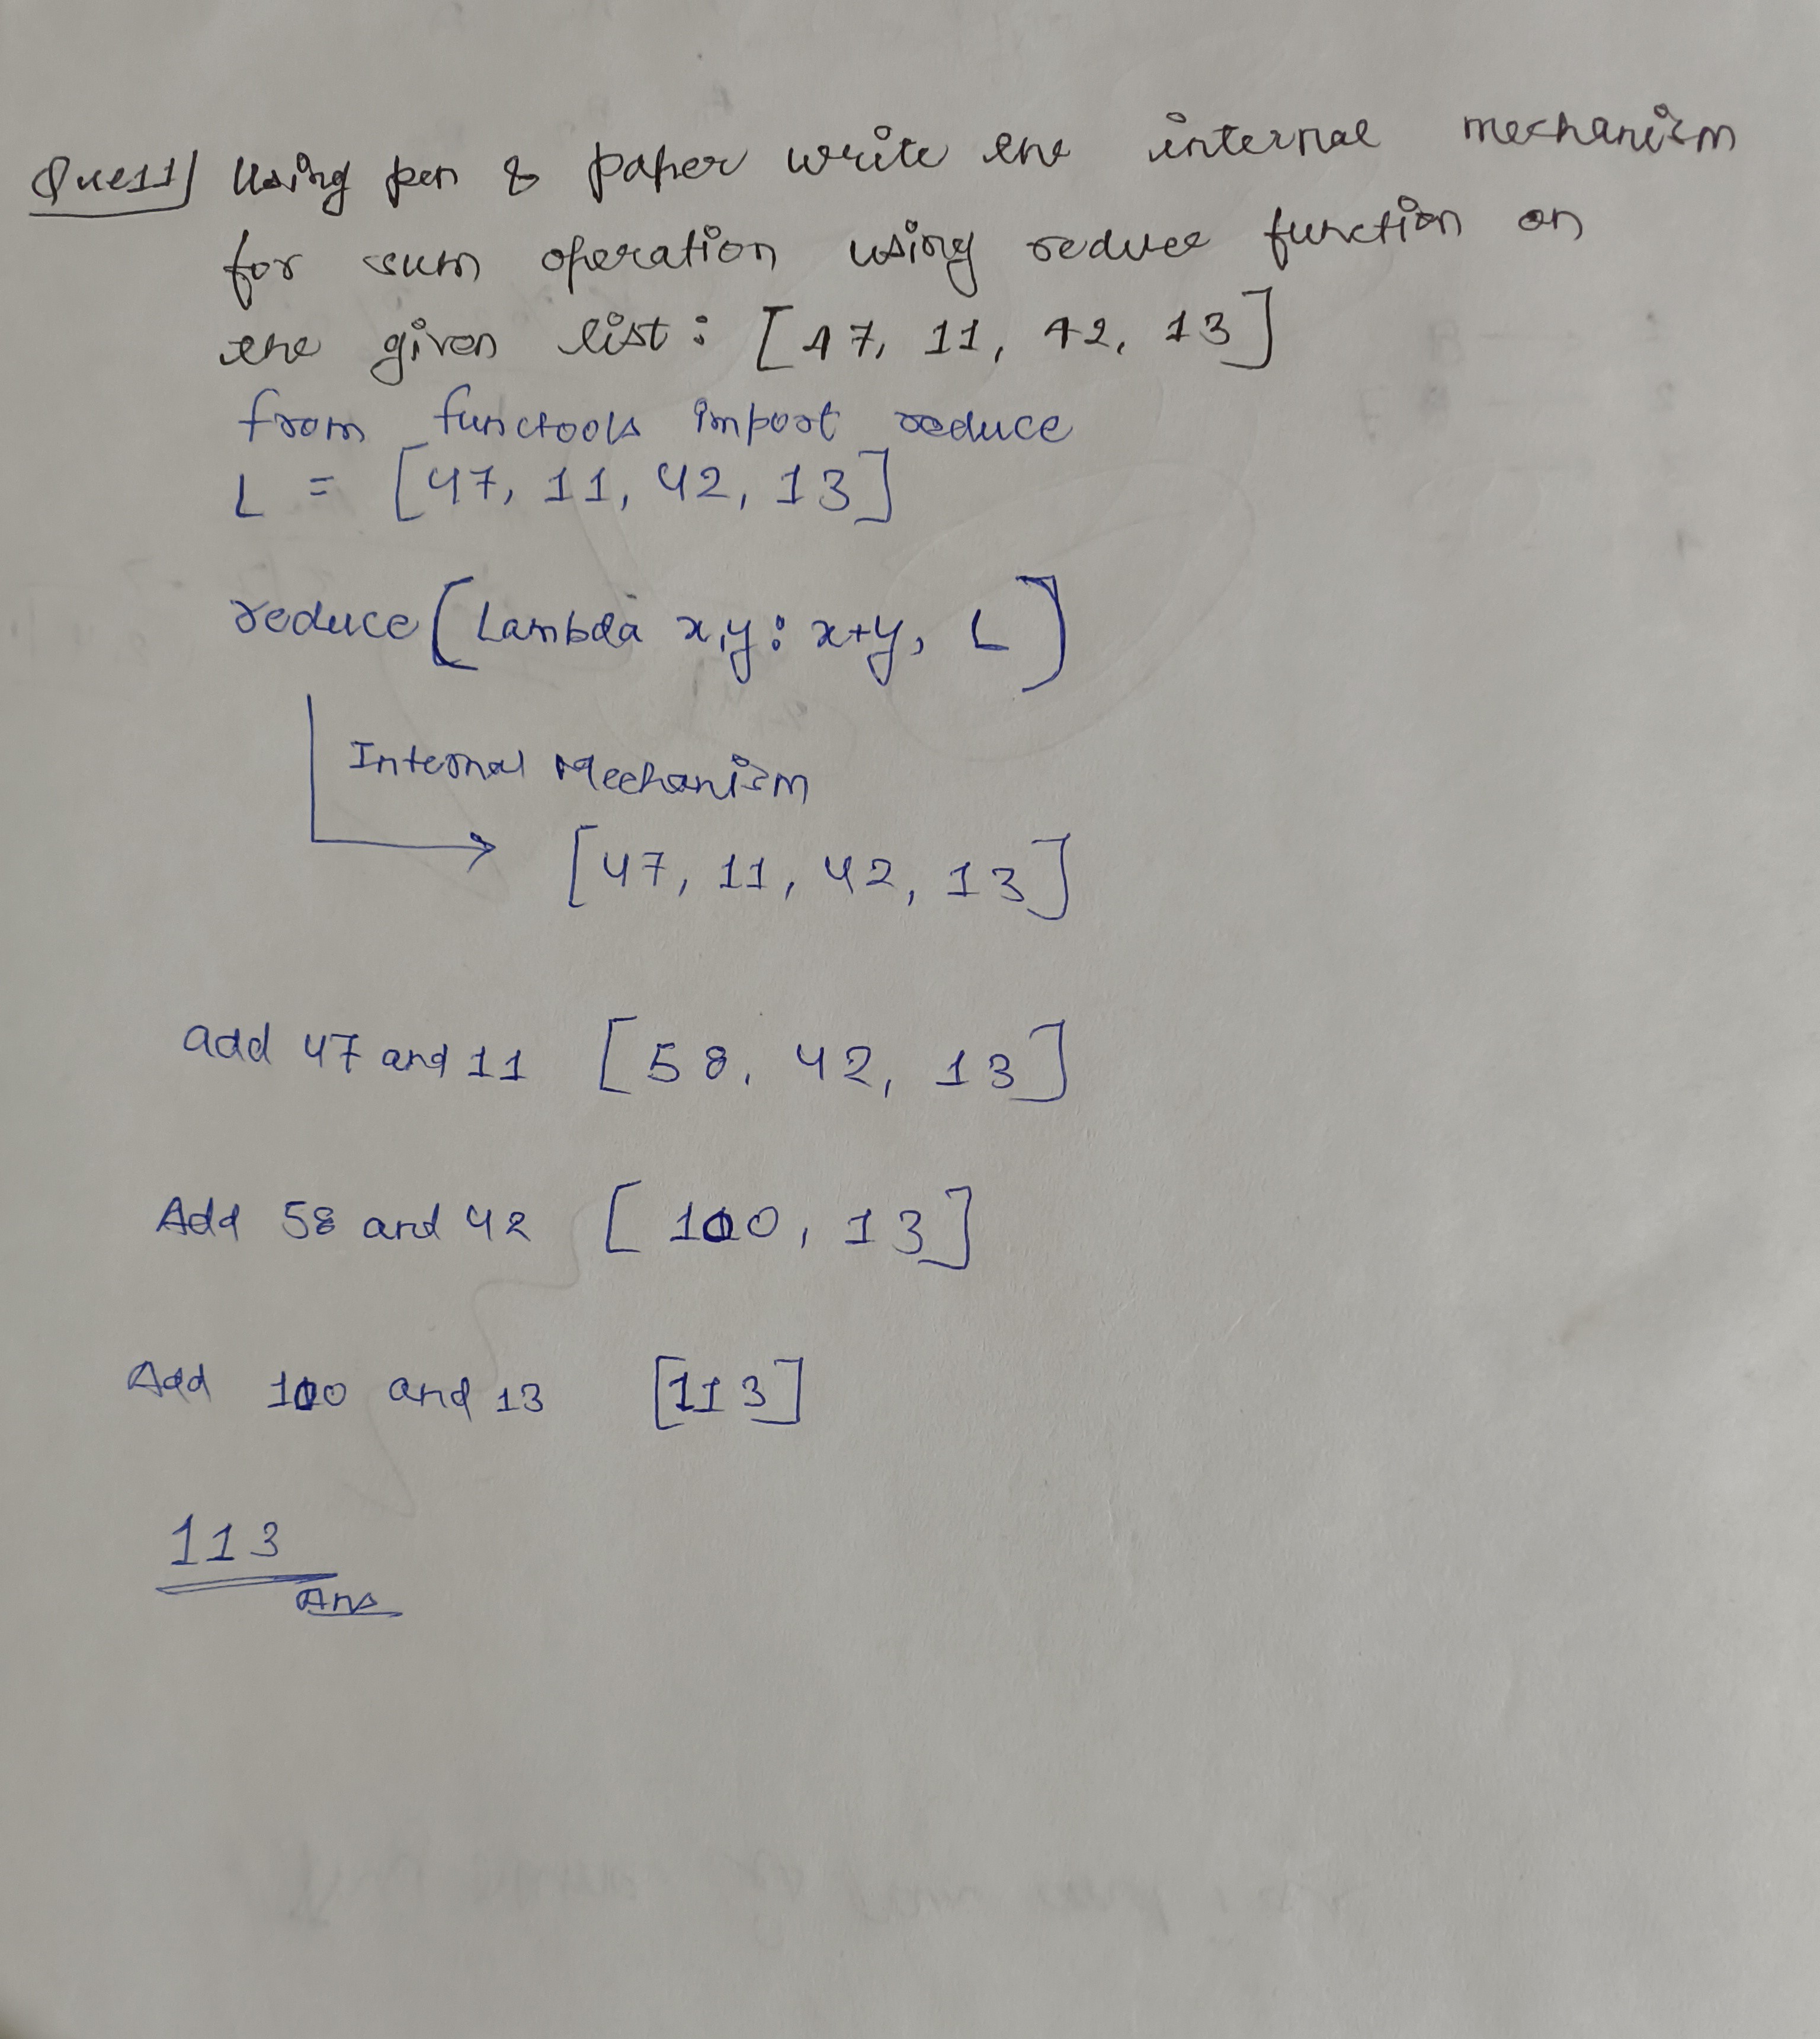 Que11/ Using pen & paper write the internal mechanism
for sum operation using reduce function on
the given list: [47, 11, 42, 13]
from functools import reduce
L = [47, 11, 42, 13]
reduce (Lambda x,y: x+y, L)
Internal Mechanism
[47, 11, 42, 13]
add 47 and 11 [58, 42, 13]
Add 58 and 42 [100, 13]
Add 100 and 13 [113]
113
Ans